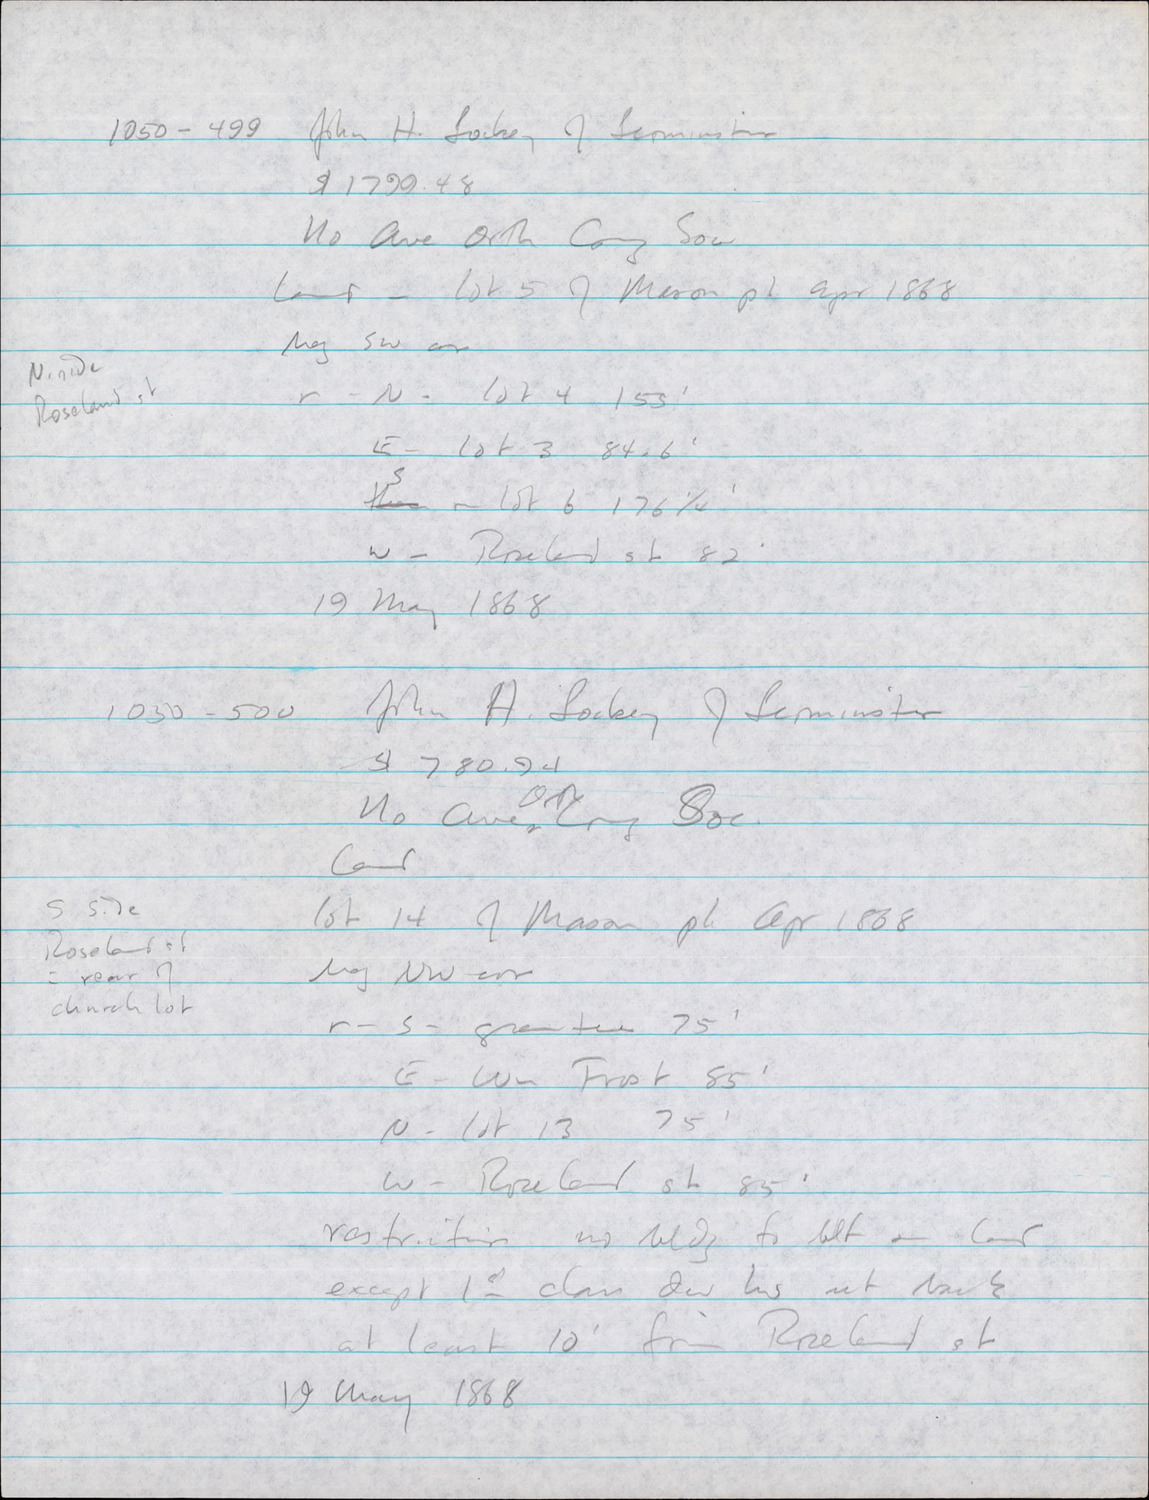 1050-499 John H. Lockey of Leominster
$1790.48
No Ave Orth Cong Soc
Land - lot 5 of Mason pl Apr 1868
beg SW cor
N. side
Roseland st
r - N - lot 4 153'
E - lot 3 84.6'
S - lot 6 176 1/4'
W - Roseland st 82'
19 May 1868
1050-500 John H. Lockey of Leominster
$ 780.94
No Ave Orth Cong Soc.
Land
S side
Roseland st
= rear of
church lot
lot 14 of Mason pl Apr 1868
beg NW cor
r - S - grantee 75'
E - Wm Frost 85'
N - lot 13 75'
W - Roseland st 85'
restriction no bldg to blt on land
except 1st class dw hs set back
at least 10' from Roseland st
19 May 1868